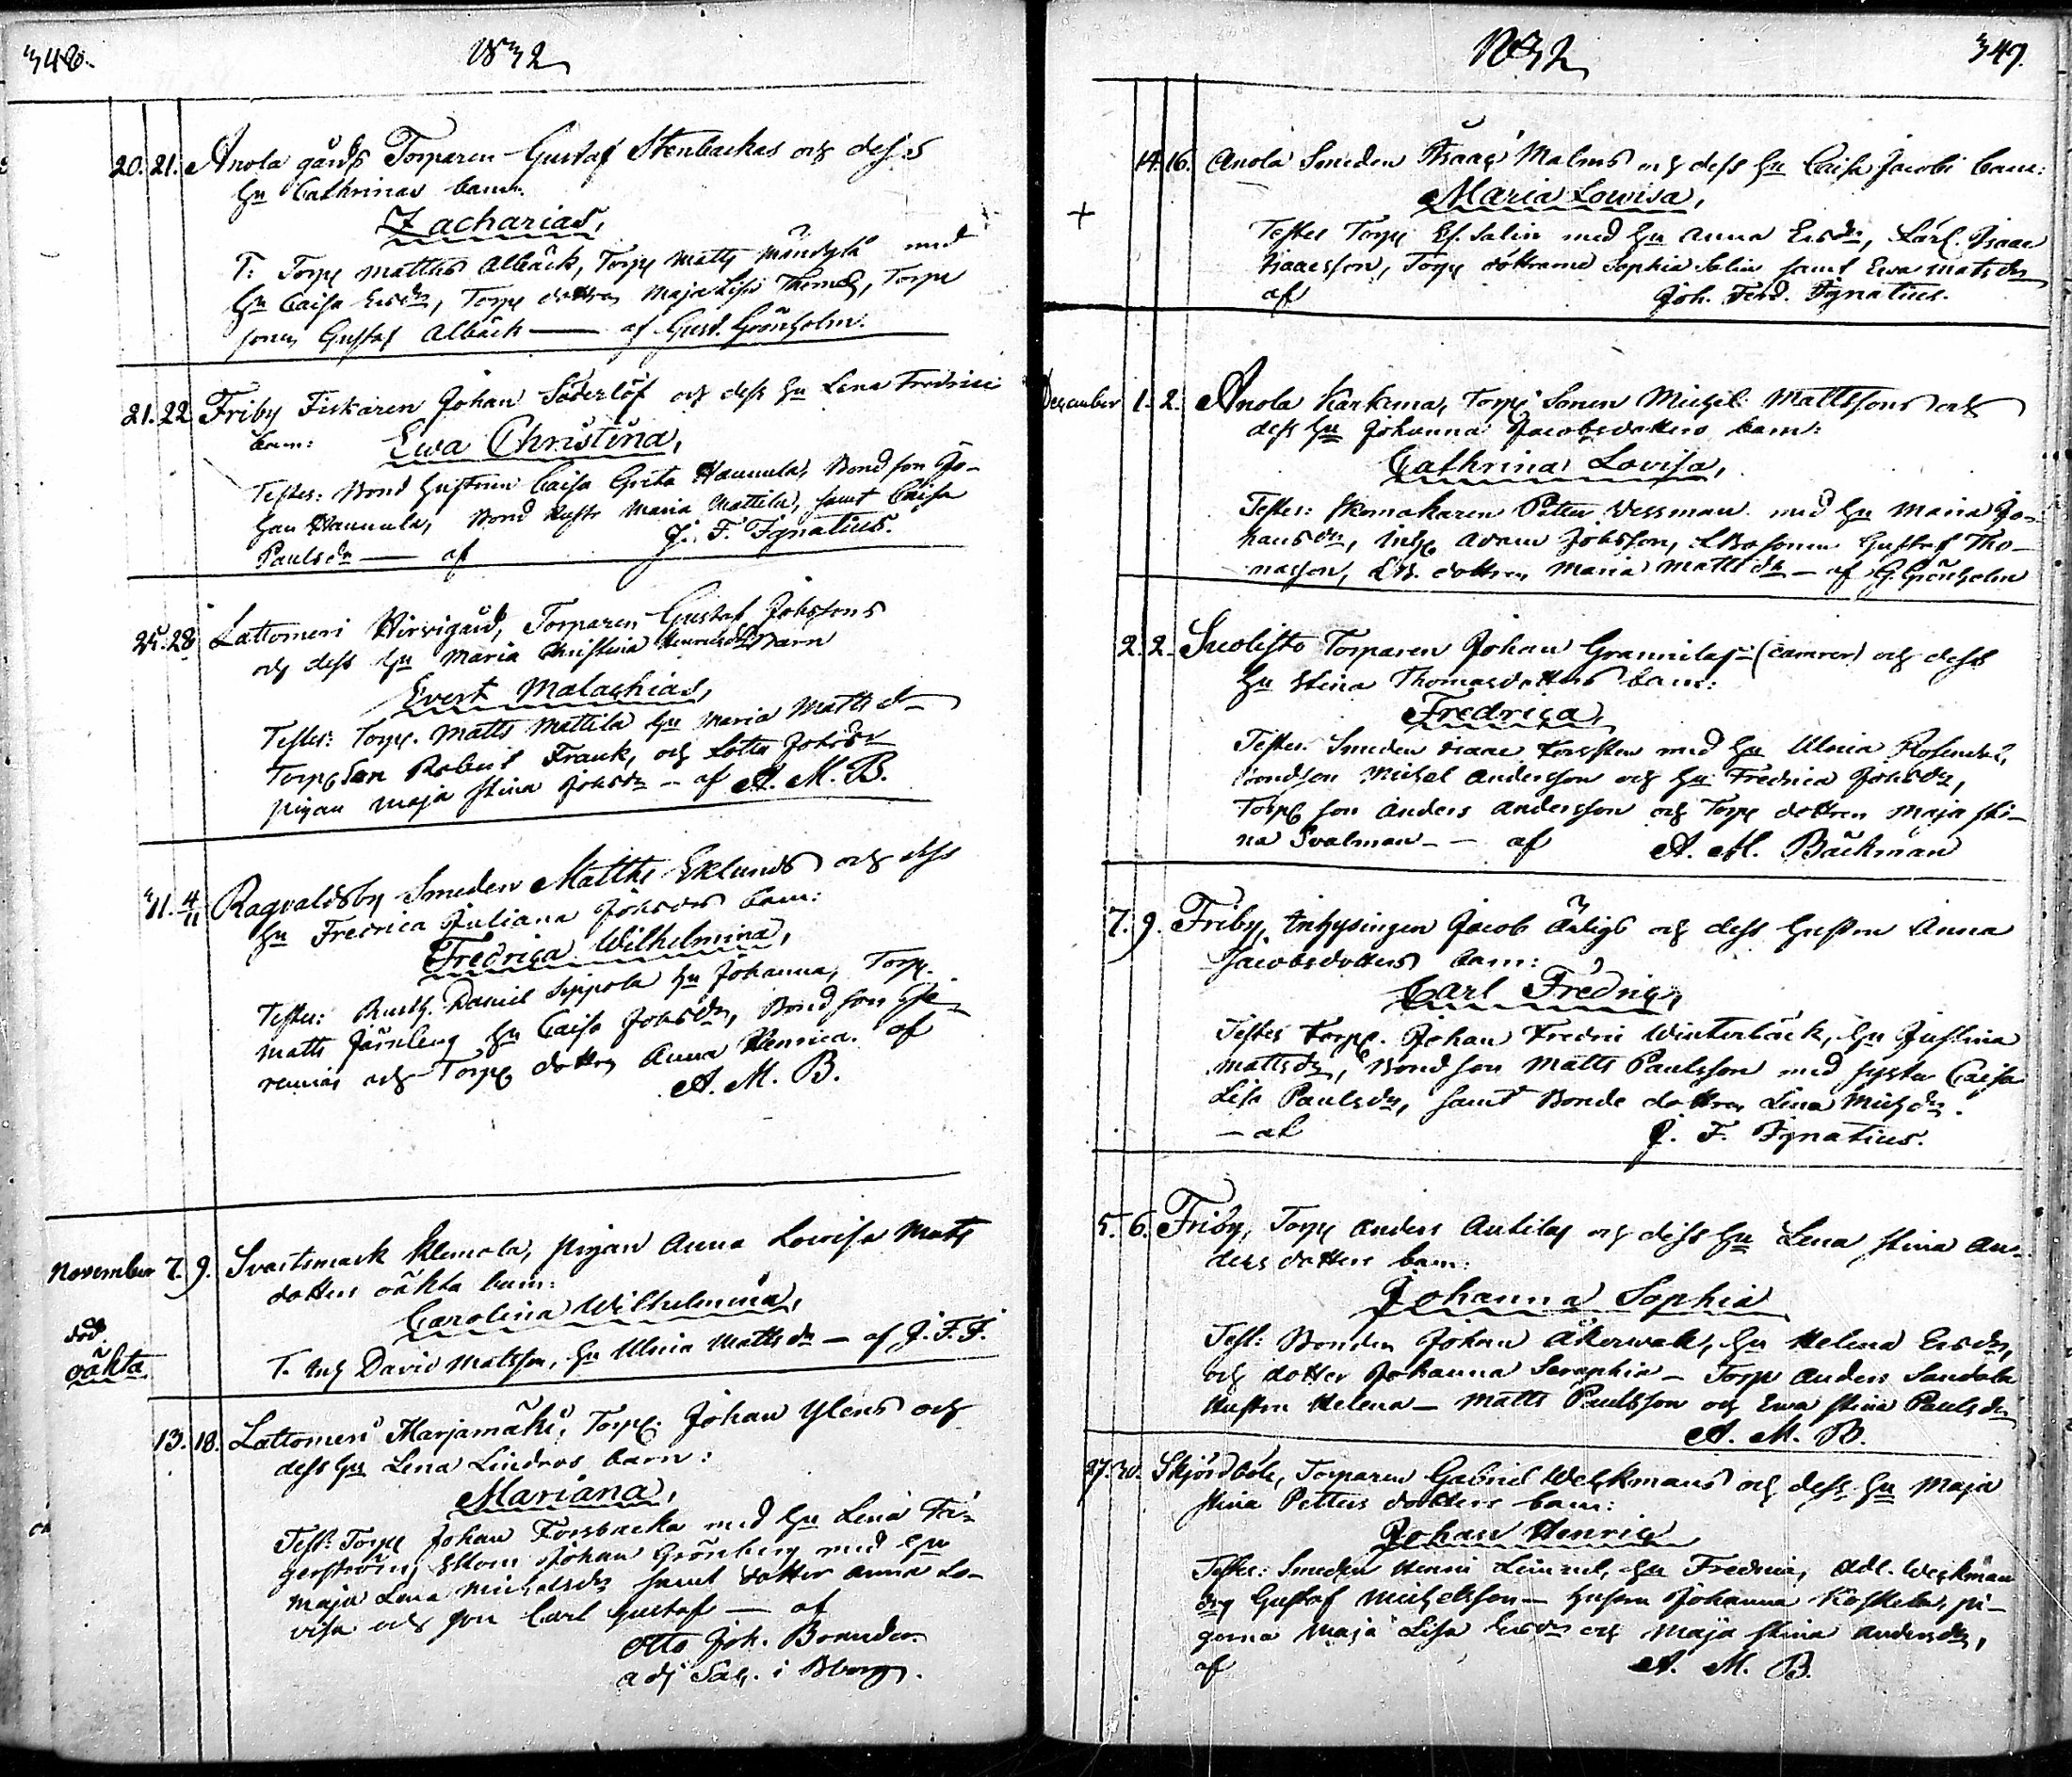 348.
1832
20. 21. Anola gårds Torparen Gustaf Stenbackas och dess
hu Cathrinas barn.
Zacharias,
T: Torp matths Albäck, Torp matts mändylä med
hu Caisa Ersdr, Torp dottren Maja Lisa Thomd, Torp
sonen Gustaf Albäck — af Gust. Grönholm.
21. 22 Friby Fiskaren Johan Söderlöf och dess hu Lena Fredrici
barn: Ewa Christina,
Testes: Bond hustrun Caisa Greta Hannula, Bond son Jo-
han Hannula, Bond hustr Maria Mattila, samt Caisa
Paulsdr — af J. F. Ignatius.
25. 28 Lattomeri Hirvigård, Torparen Gustaf Johssons
och dess hu Maria Christina Barn
Evert Malachias,
Testes: Torp. Matts Mattila hu Maria Mattsd
Torp Son Robert Frank, och Lotta Johsdr
pigan Maja Stina Johsdr – af A. M. B.
4/11 Ragvaldsby Smeden Matths Eklunds och dess
hu Fredrica Juliana Johsdrs barn:
Fredrica Wilhelmina,
Testes: Rusth. Daniel Sippola hu Johanna, Torp.
Matts Järnberg hu Caisa Johsdr, Bond son Je-
remias och Torp dottren Anna Henrica. af
A. M. B.
November 7. 9. Svartsmark Klemola, pigan Anna Lovisa Mats
dotters oäkta barn:
Carolina Wilhelmina,
död.
oäkta
T. Inh David Matsson, hu Ulrica Mattsdr – af J. F. I.
13. 18. Lattomeri Marjamäki, Torp. Johan Ylens och
dess hu Lena Lindros barn:
Mariana,
Test: Torp Johan Forsbacka med hu Lena Fri-
gerström, Skom Johan Grönberg med hu
Maja Lena Michelsdr samt dotter Anna Lo-
visa och son Carl Gustaf — af
Otto Joh. Brander.
adj Sac. i Bborg.
1832
349.
14. 16. Anola Smeden Isaac Malms och dess hu Caisa Jacobi barn:
Maria Lovisa,
+
Testes Torp Ef. Salin med hu Anna Ersdr, Karl. Isaac
Isaacsson, Torp döttrarne Sophia Salin samt Ewa Matsdr
af Joh. Ferd. Ignatius.
December 1. 2. Anola Karkima, Torp Sonen Michel Mattssons och
dess hu Johanna Jacobsdotters barn:
Cathrina Lovisa,
Testes: Skomakaren Petter Wessman med hu Maria Jo-
hansdr, Inh Adam Johsson, LBo sonen Gustaf Tho-
masson, LB. dottren Maria Mattsdr – af G. Grönholm
2. 2. Suolisto Torparen Johan Grannilas (Camrer) och dess
hu Stina Thomasdotters barn:
Fredrica,
Testes: Smeden Isaac Forssten med hu Ulrica Rosendal,
bondson Michel Andersson och hu Fredrica Johsdr,
Torp son Anders Andersson och Torp dottren Maja Sti-
na Svalman – – af A. M. Bäckman
7. 9. Friby, Inhysingen Jacob Ärligs och dess hustru Anna
Jacobsdotters barn:
Carl Fredric,
Testes Torp. Johan Fredric Winterbäck, hu Justina
Mattsdr, Bondson Matts Paulsson med syster Caisa
Lisa Paulsdr, samt Bonde dottren Lena Michsdr.
– af J. F. Ignatius.
5. 6. Friby, Torp Anders Antilas och dess hu Lena Stina An-
ders dotters barn:
Johanna Sophia
Test: Bonden Johan Åkerwall, hu Helena Ersdr,
och dotter Johanna Seraphia – Torp Anders Sandala
hustru Helena – Matts Paulsson och Ewa Stina Paulsdr
A. M. B.
27. 30. Skjördböle, Torparen Gabriel Weckmans och dess hu Maja
Stina Petters dotters barn:
Johan Henric
Testes: Smeden Henric hu Fredrica, Adl. Weckman
drg Gustaf Michelsson – hustru Johanna Koskela, pi-
gorna Maja Lisa Ersdr och Maja Stina Andersdr,
af A. M. B.